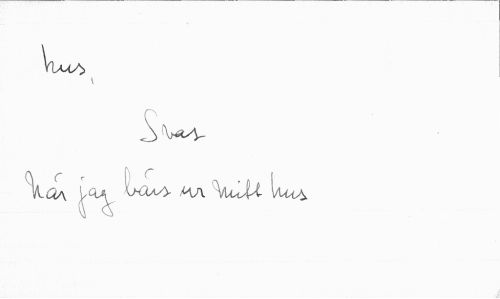 hus,
Svas
När jag bärs ur mitt hus